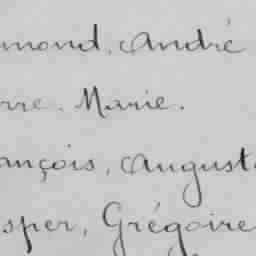 mond. André
rre. Marie.
ançois, August
sper, Grégoire